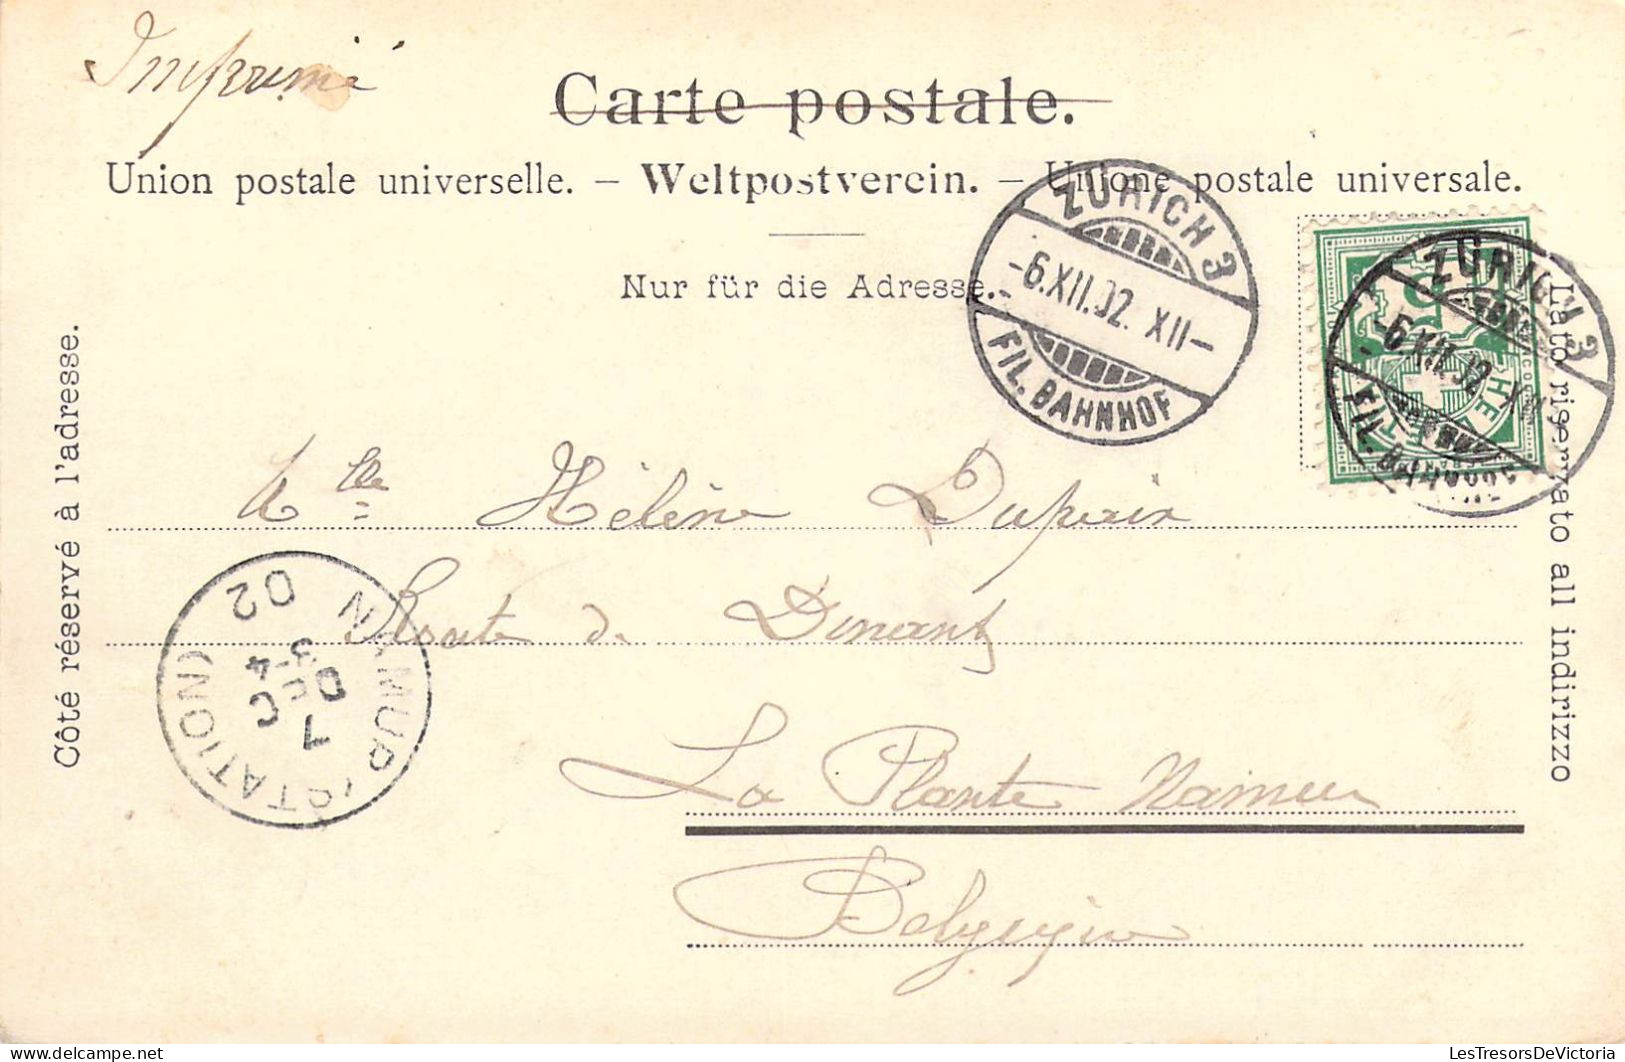 Imprimé
Carte postale.
Union postale universelle. – Weltpostverein. – Unione postale universale.
Nur für die Adresse.
ZÜRICH 3
-6.XII.02. XII-
FIL. BAHNHOF
ZÜRICH 3
-6.XII.02. XII
FIL. BAHNHOF
5
HELVETIA
Côté réservé à l'adresse.
Lato riservato all indirizzo
Mlle Hélène Dupaix
Route de Dinant
La Plante Namur
Belgique
NAMUR (STATION)
7 DEC
3-4
02
LesTresorsDeVictoria